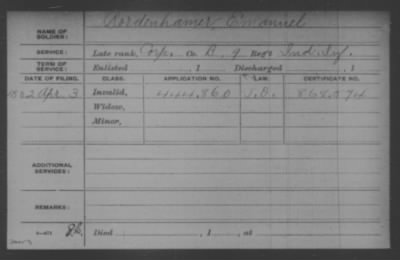 NAME OF SOLDIER: Bordenhamer, Emanuel
SERVICE: Late rank, Co. B, 9 Reg't Ind. Inf.
TERM OF SERVICE: Enlisted , 1 Discharged , 1
DATE OF FILING. CLASS. APPLICATION NO. LAW. CERTIFICATE NO.
Apr. 3 Invalid, 444,860
Widow,
Minor,
ADDITIONAL SERVICES:
REMARKS:
Died , 1 , at